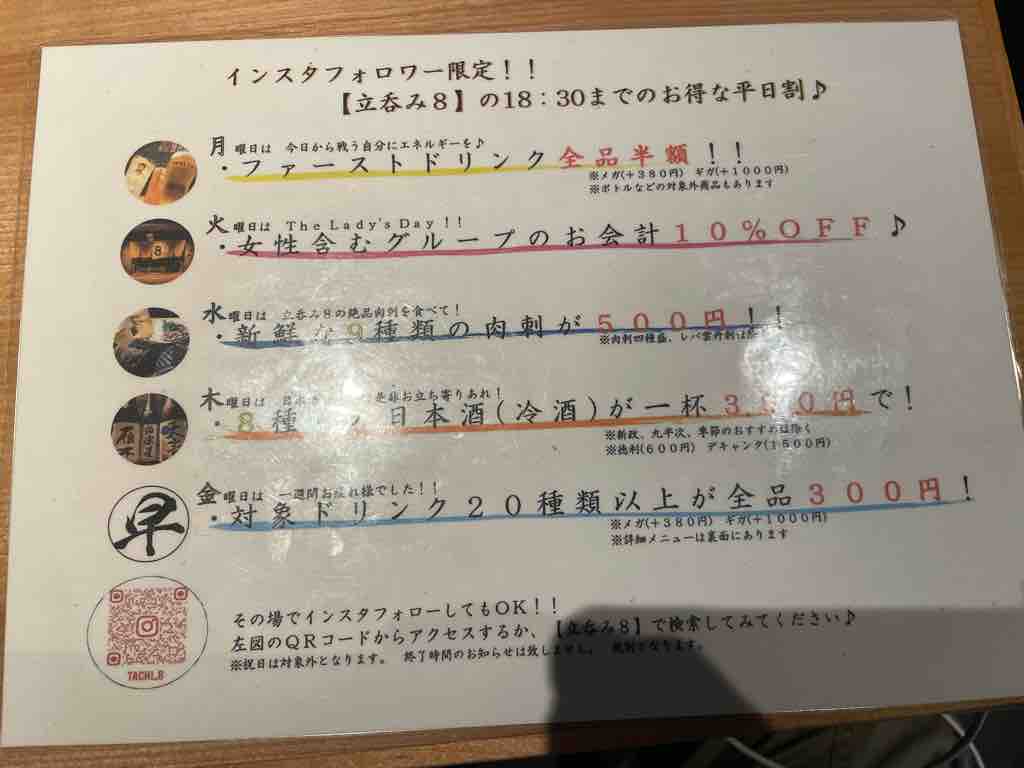 インスタフォロワー限定！！
【立呑み８】の18：30までのお得な平日割♪
月曜日は 今日から戦う自分にエネルギーを♪
・ファーストドリンク全品半額！！
※メガ(＋380円) ギガ(＋1000円)
※ボトルなどの対象外商品もあります
火曜日は The Lady's Day！！
・女性含むグループのお会計１０％ＯＦＦ♪
水曜日は 立呑み８の絶品肉刺を食べて！
・新鮮な９種類の肉刺が５００円！！
※肉刺四種盛、レバ雲丹刺は
木曜日は 是非お立ち寄りあれ！
・８種 日本酒(冷酒)が一杯３００円で！
※新政、九平次、季節のおすすめは除く
※徳利(600円) デキャンタ(1500円)
金曜日は 一週間お疲れ様でした！！
・対象ドリンク２０種類以上が全品３００円！
※メガ(＋380円) ギガ(＋1000円)
※詳細メニューは裏面にあります
早
TACHI_8
その場でインスタフォローしてもOK！！
左図のQRコードからアクセスするか、【立呑み８】で検索してみてください♪
※祝日は対象外となります。 終了時間のお知らせは致しません。 税別となります。